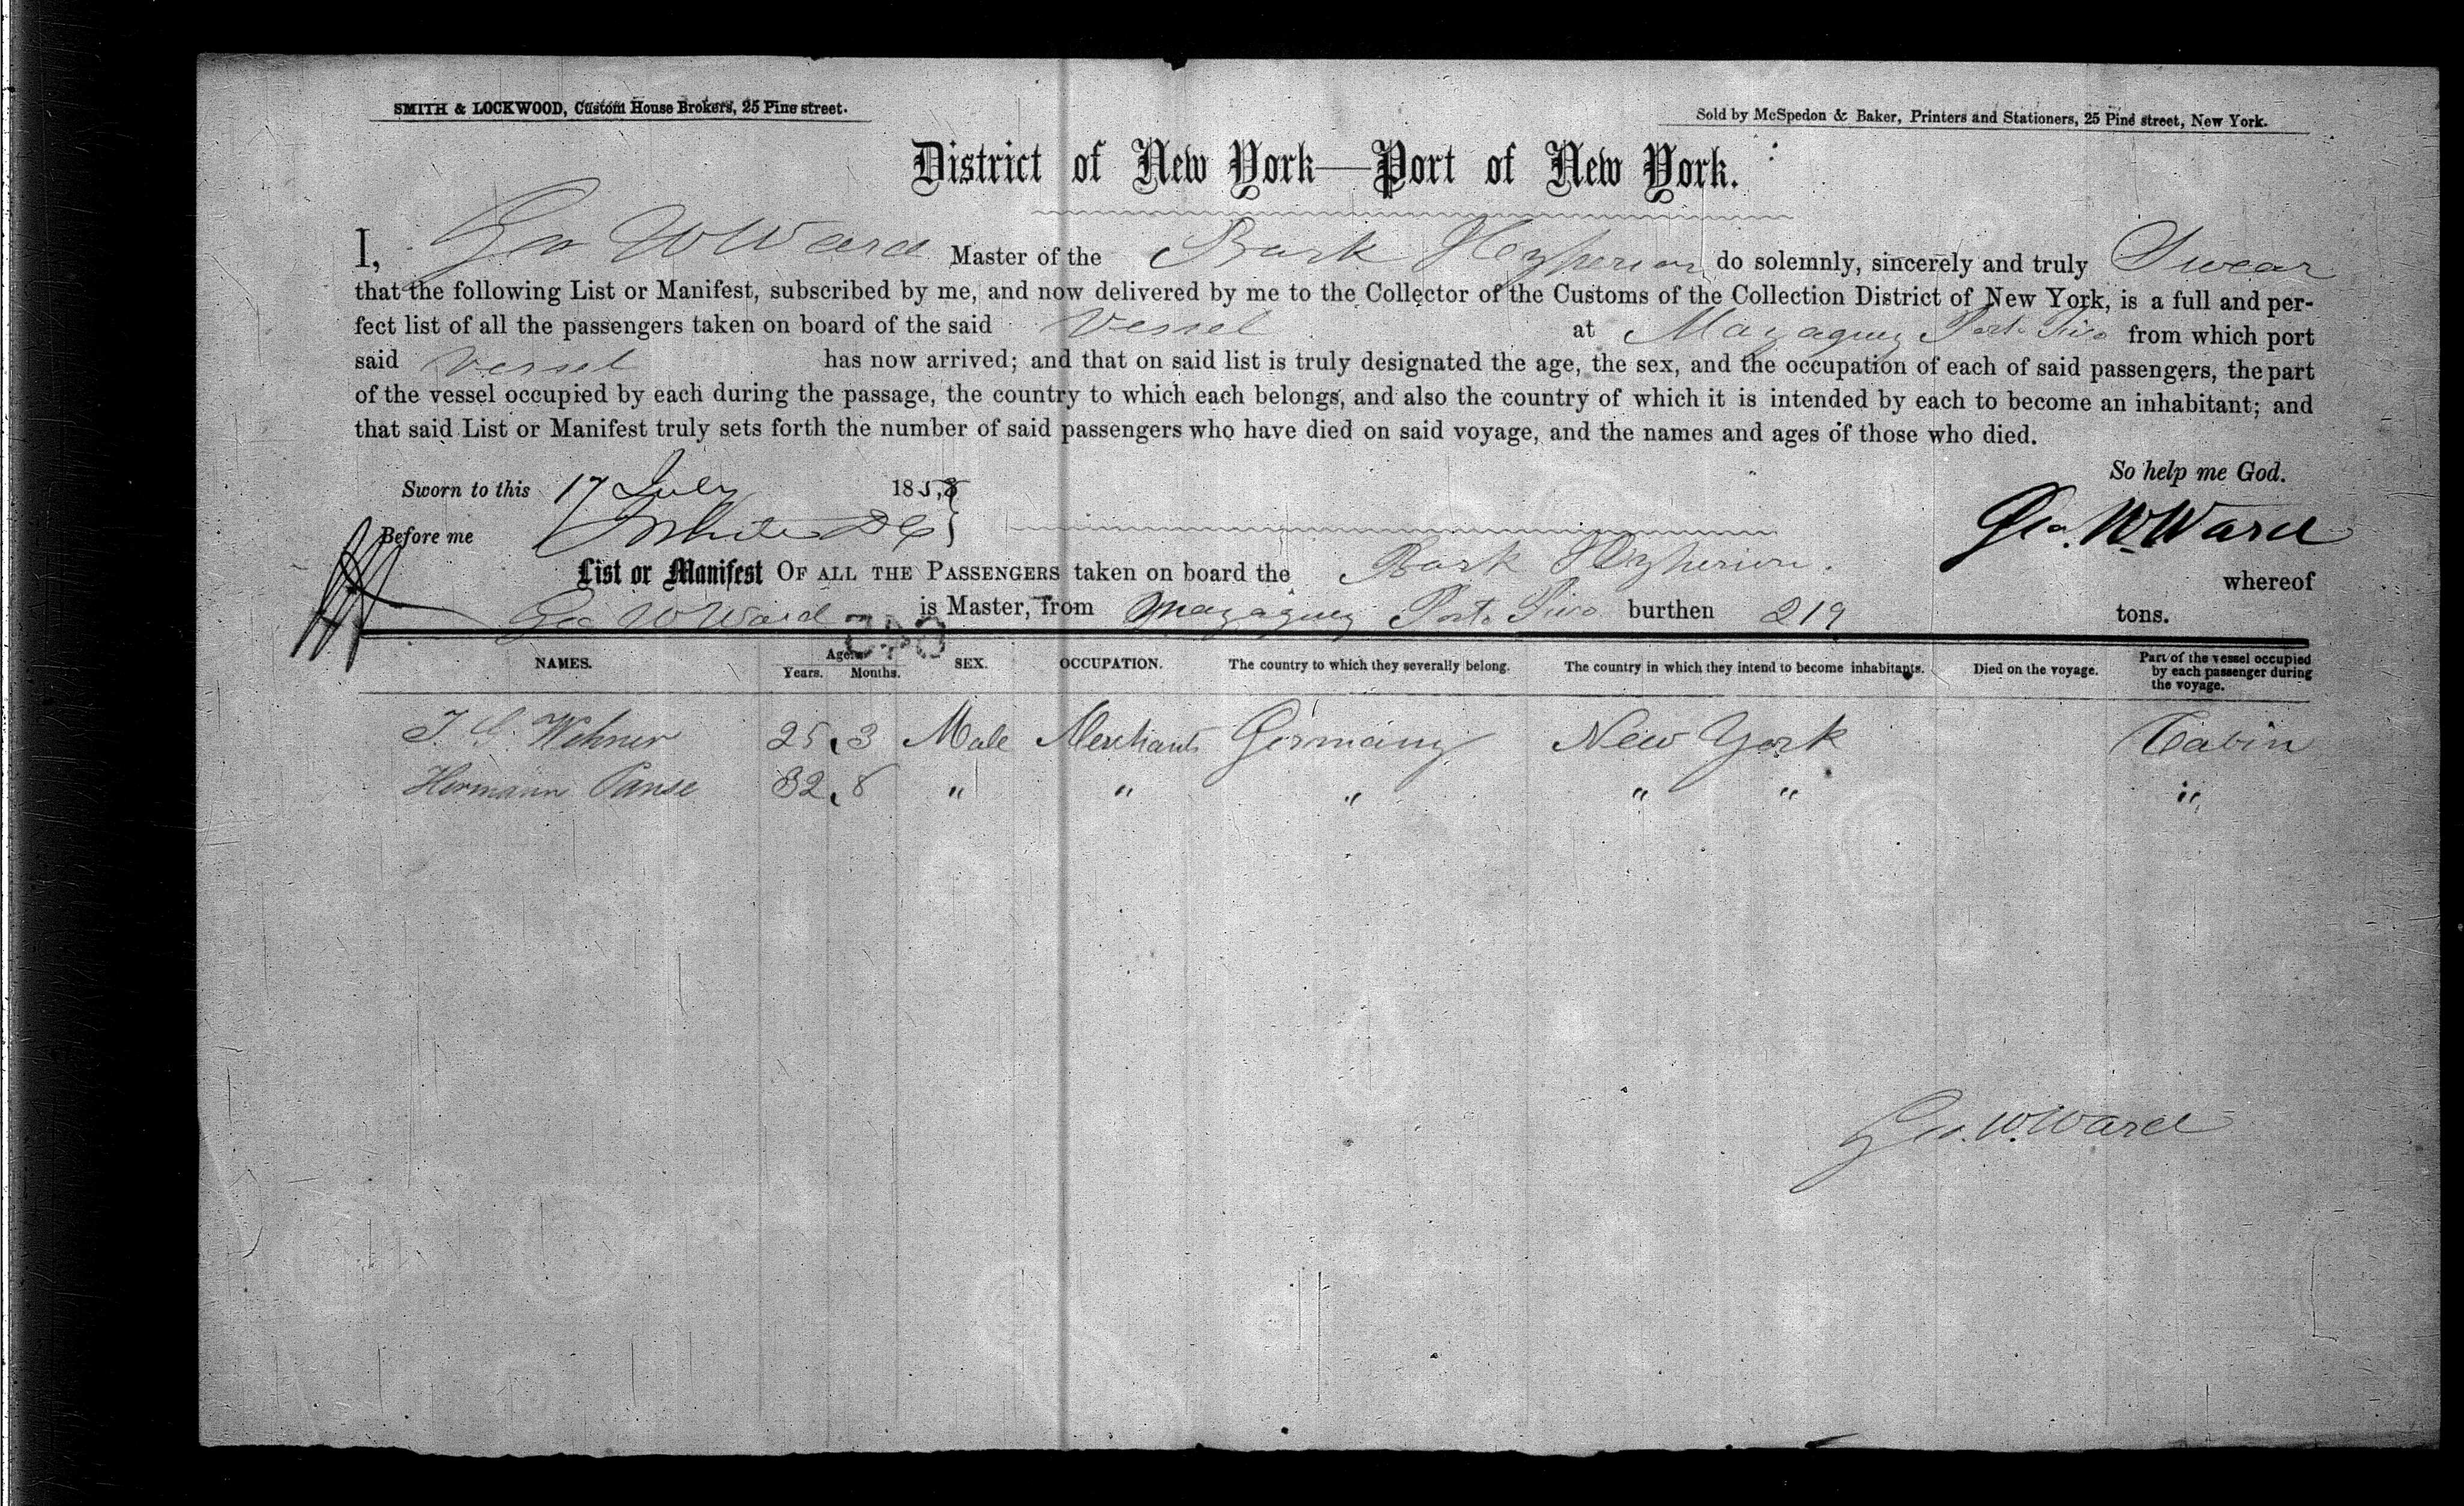 SMITH & LOCKWOOD, Custom House Brokers, 25 Pine street.
Sold by McSpedon & Baker, Printers and Stationers, 25 Pine street, New York.
District of New York—Port of New York.
I, Geo W Ward Master of the Bark Hyperion do solemnly, sincerely and truly Swear
that the following List or Manifest, subscribed by me, and now delivered by me to the Collector of the Customs of the Collection District of New York, is a full and per-
fect list of all the passengers taken on board of the said Vessel at Mayaguez Porto Rico from which port
said Vessel has now arrived; and that on said list is truly designated the age, the sex, and the occupation of each of said passengers, the part
of the vessel occupied by each during the passage, the country to which each belongs, and also the country of which it is intended by each to become an inhabitant; and
that said List or Manifest truly sets forth the number of said passengers who have died on said voyage, and the names and ages of those who died.
So help me God.
Sworn to this 17 July 1858
Geo. W. Ward
Before me
List or Manifest OF ALL THE PASSENGERS taken on board the Bark Hyperion. whereof
Geo W Ward is Master, from Mayaguez Porto Rico burthen 219 tons.
NAMES. Age. Years. Months. SEX. OCCUPATION. The country to which they severally belong. The country in which they intend to become inhabitants. Died on the voyage. Part of the vessel occupied by each passenger during the voyage.
J. G. Wehner 25, 3 Male Merchants Germany New York Cabin
Hermann Panse 32, 8 " " " " " "
Geo. W. Ward